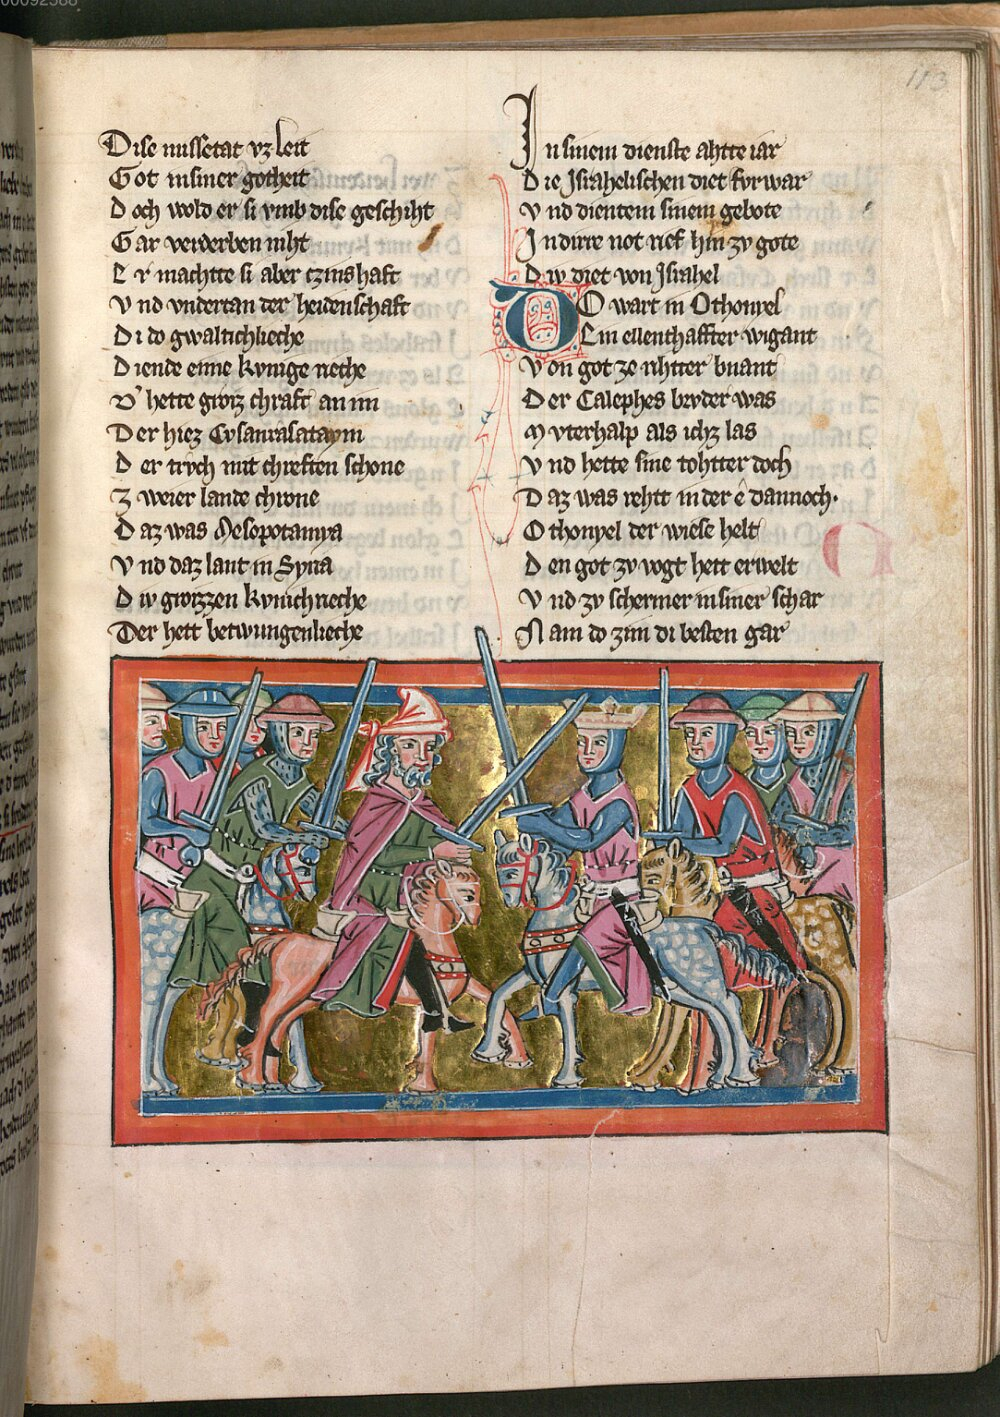 00092588
113
Dise missetat vz leit
Got in siner gotheit
Doch wold er si vmb dise geschiht
Gar verderben niht
Er machtte si aber czinshaft
Vnd vndertan der heidenschaft
Di do gwaltichlieche
Diende eime kvnige neche
D' hette groiz chraft an im
Der hiez Cvsanrasataym
Der trvch mit chreften schone
Zweier lande chrone
Daz was Mesopotamya
Vnd daz lant in Syria
Div groizzen kvnichreche
Der hett betwungenlieche
In sinem dienste ahtte iar
Die Jsrahelischen diet for war
Vnd dientem sinem gebote
Jn dirre not rief hin zv gote
Div diet von Jsrahel
DO wart in Othonyel
Ein ellenthaffter wigant
Von got ze rihtter bnant
Der Calephes brvder was
Mvterhalp als ichz las
Vnd hette sine tohtter doch
Daz was rehtt in der ê dannoch.
Othonyel der wiese helt
Den got zv vogt hett erwelt
Vnd zv schermer in siner schar
Nam do zim di besten gar